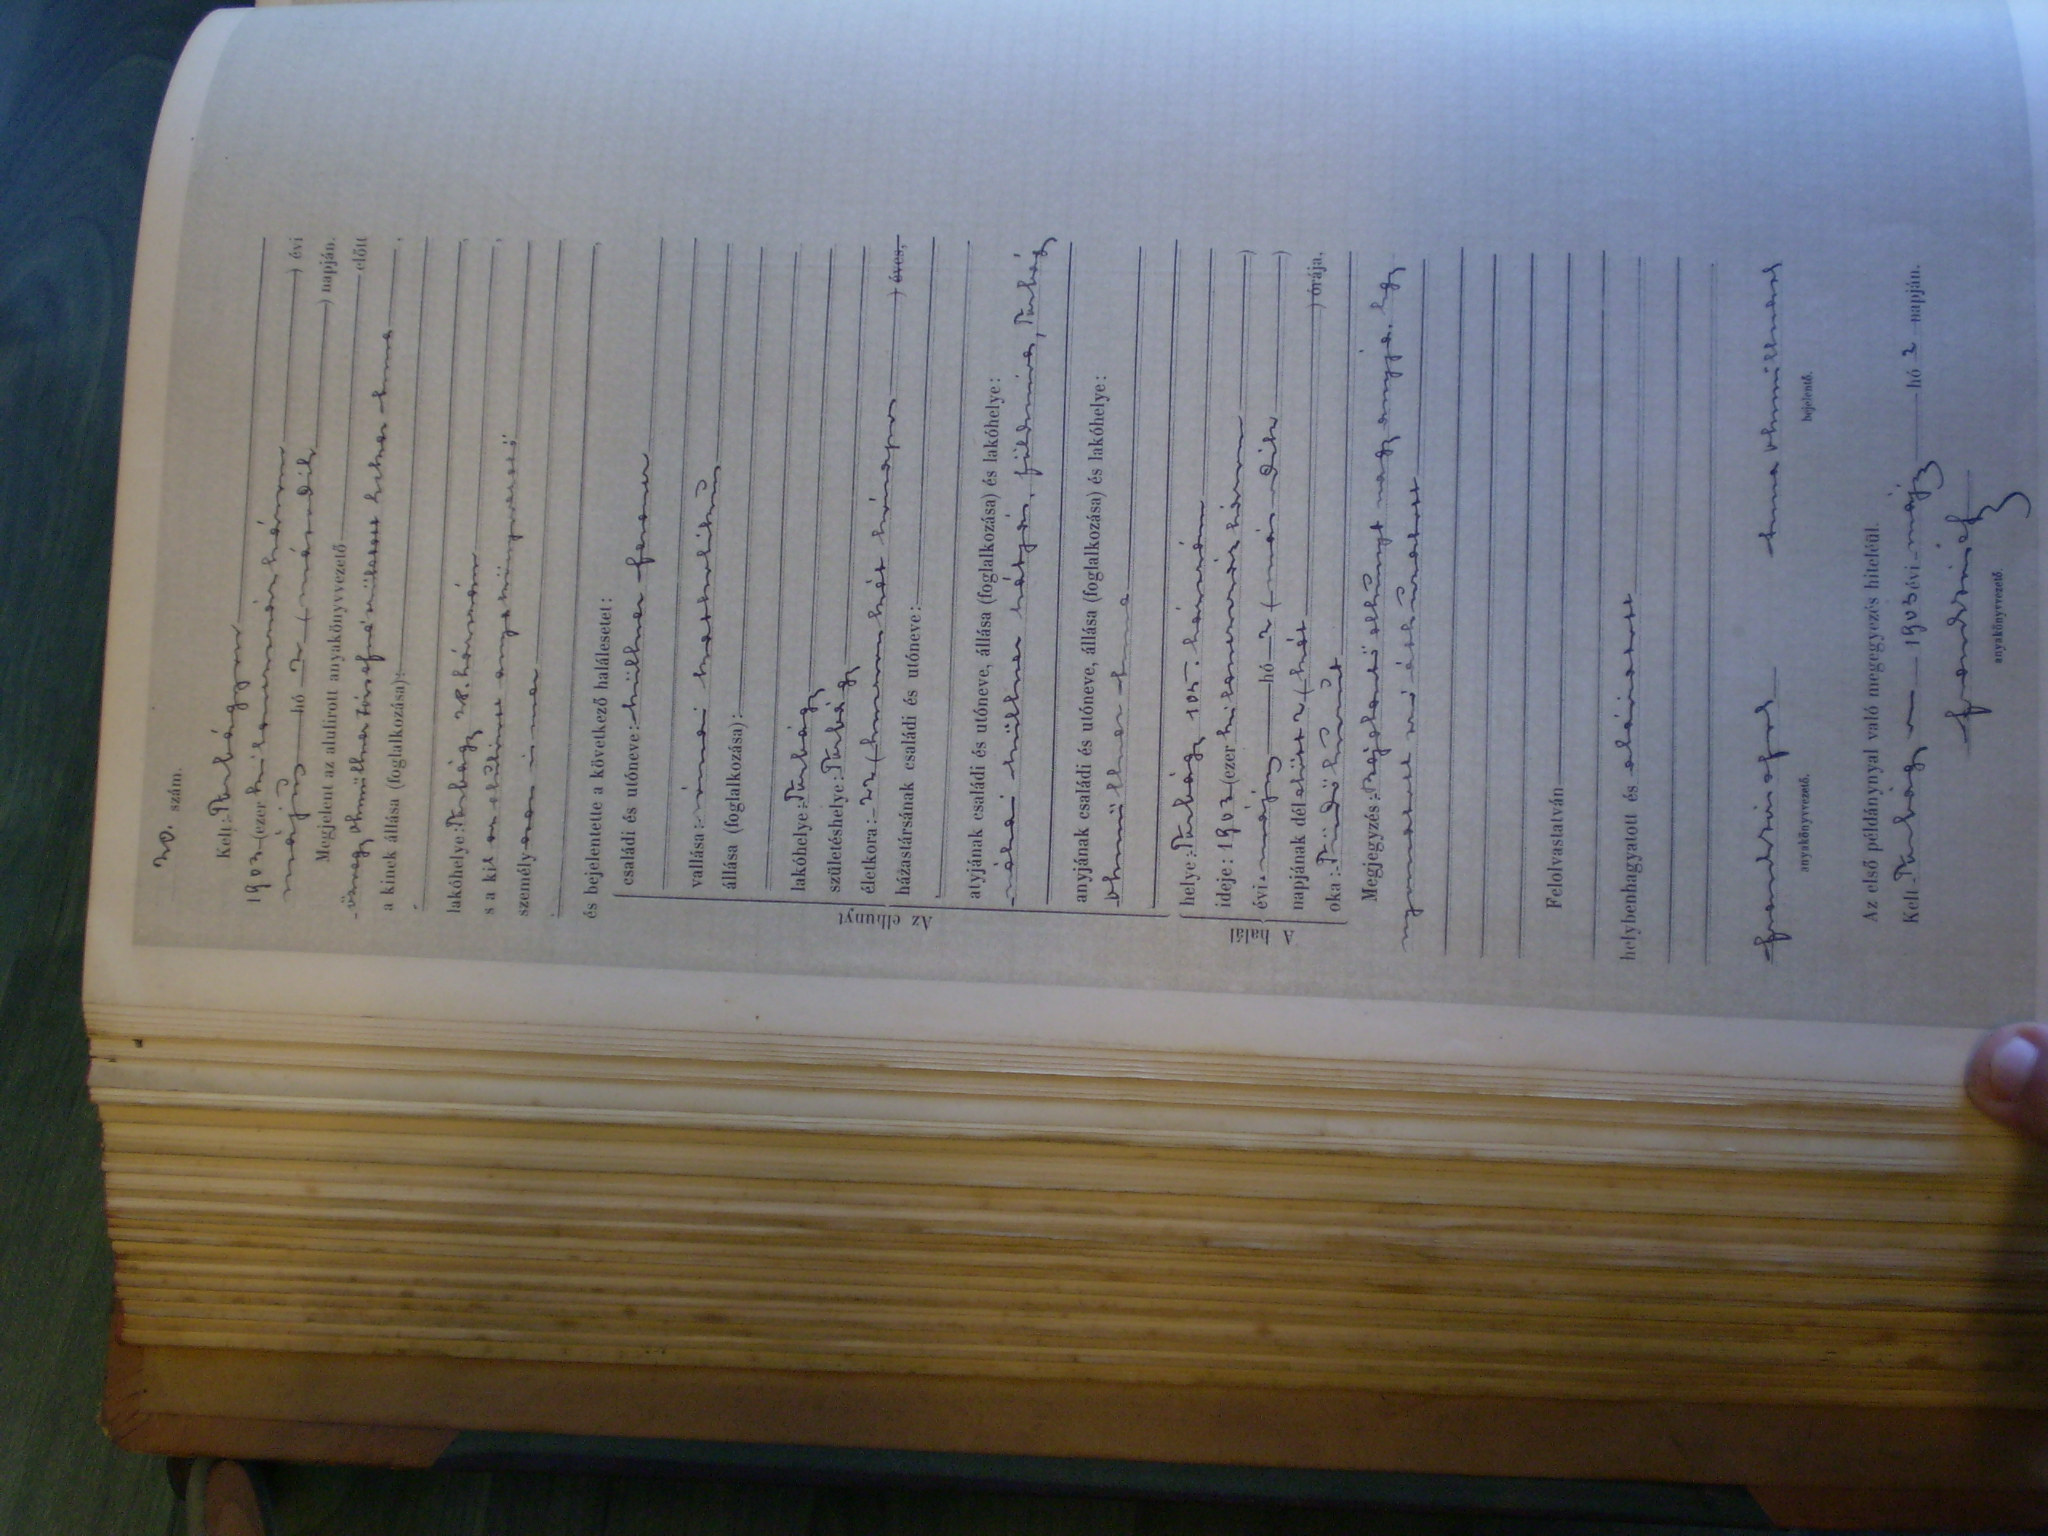 30. szám.
Kelt: Turbágyon
1903 (ezer kilencszázhárom) évi
május hó 2 (második) napján.
Megjelent az alulírott anyakönyvvezető előtt
özvegy Anna
a kinek állása (foglalkozása):
lakóhelye: Turbágy 28. házszám
s a kit az alulírott anyakönyvvezető
személyesen ismer
és bejelentette a következő halálesetet:
Az elhunyt
családi és utóneve: Müllner Ferenc
vallása: római katholikus
állása (foglalkozása):
lakóhelye: Turbágy
születéshelye: Turbágy
életkora: 22 (huszonkét hónapos) éves,
házastársának családi és utóneve:
atyjának családi és utóneve, állása (foglalkozása) és lakóhelye:
néhai Müllner Mátyás, földmíves, Turbágy
anyjának családi és utóneve, állása (foglalkozása) és lakóhelye:
A halál
helye: Turbágy 105. házszám
ideje: 1903 (ezer kilencszázhárom)
évi május hó 2 (második)
napjának délelőtt 2 (két) órája,
oka: Tüdőhurut
Megjegyzés: Bejelentő elhunyt nagyanyja.
Felolvastatván
helybenhagyatott és aláíratott
anyakönyvvezető.
bejelentő.
Az első példánynyal való megegyezés hiteléül.
Kelt Turbágy 1903 évi máj hó 2 napján.
anyakönyvvezető.